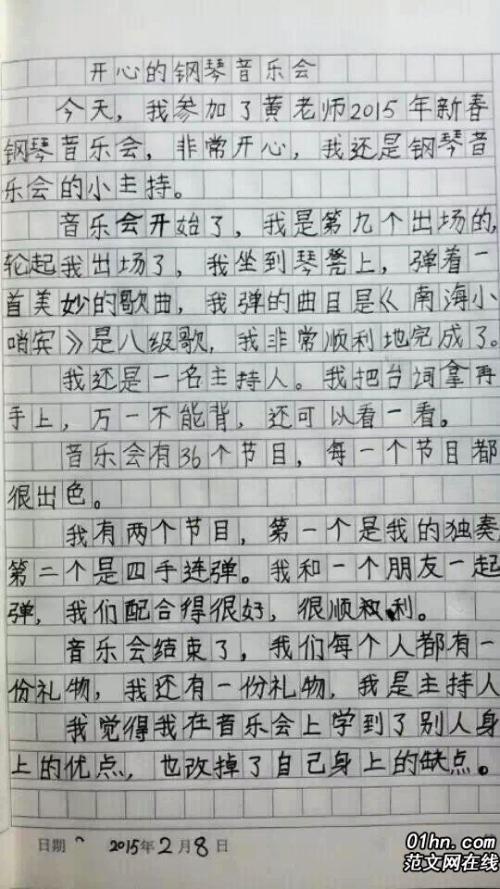 开心的钢琴音乐会
今天，我参加了黄老师2015年新春
钢琴音乐会，非常开心，我还是钢琴音
乐会的小主持。
音乐会开始了，我是第九个出场的，
轮起我出场了，我坐到琴凳上，弹着一
首美妙的歌曲，我弹的曲目是《南海小
哨宾》是八级歌，我非常顺利地完成了。
我还是一名主持人。我把台词拿再
手上，万一不能背，还可以看一看。
音乐会有36个节目，每一个节目都
很出色。
我有两个节目，第一个是我的独奏，
第二个是四手连弹。我和一个朋友一起
弹，我们配合得很好，很顺利。
音乐会结束了，我们每个人都有一
份礼物，我还有一份礼物，我是主持人
我觉得我在音乐会上学到了别人身
上的优点，也改掉了自己身上的缺点。
日期 2015年2月8日
01hn.com
范文网在线